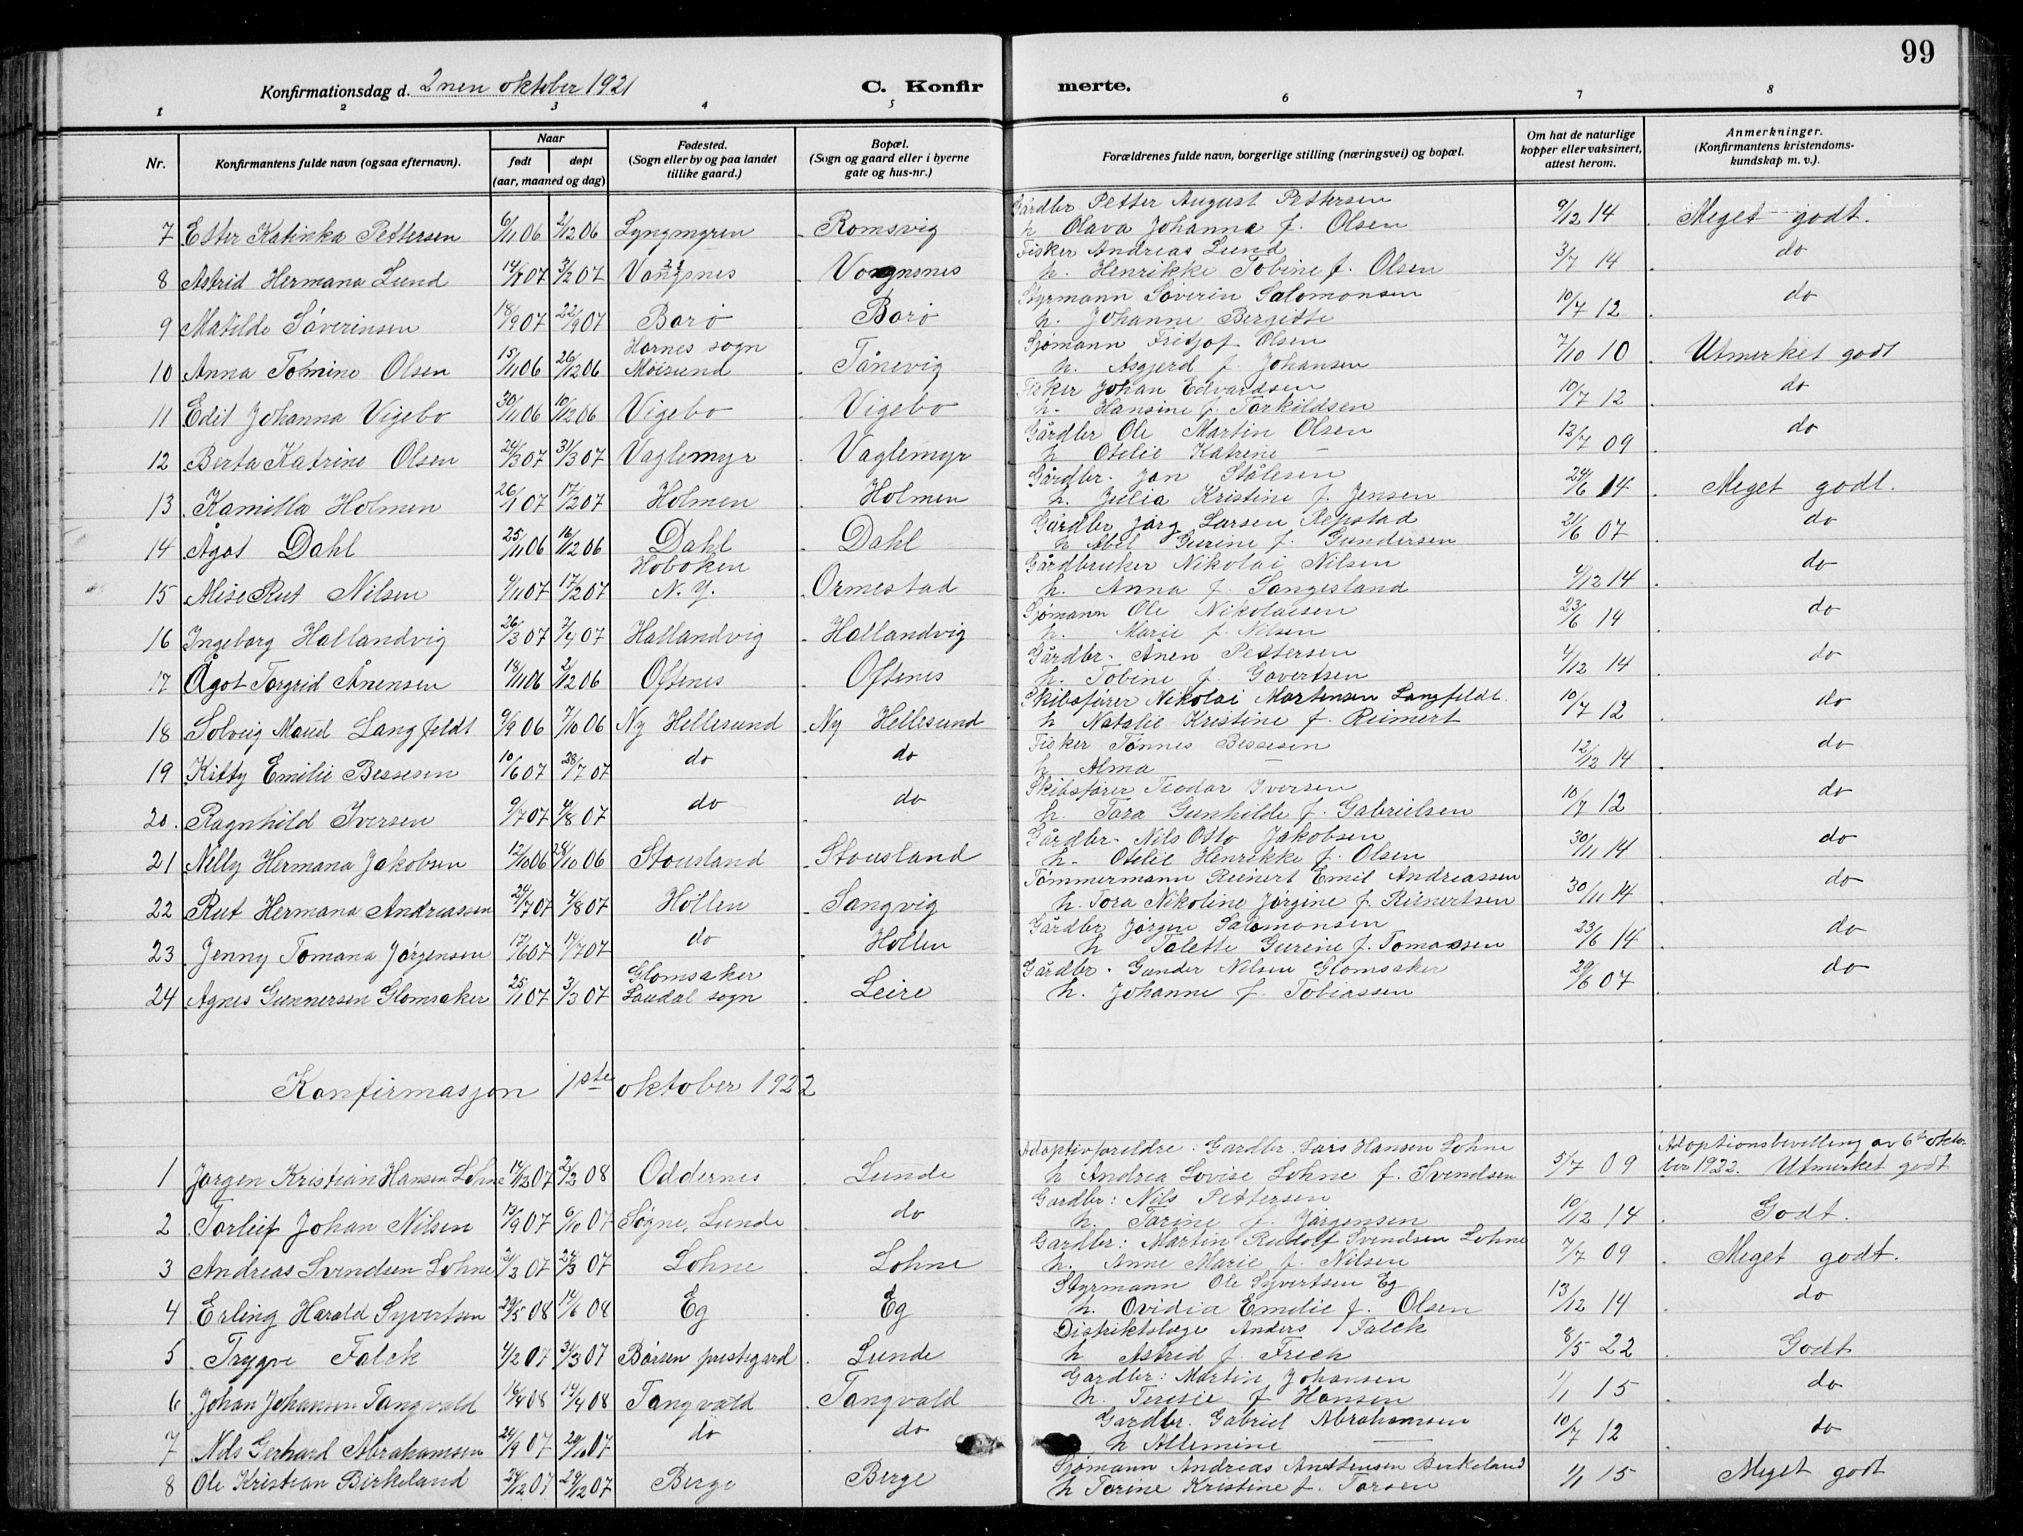 99
Konfirmationsdag d. 2nen oktober 1921 C. Konfir merte.
1 2 3 4 5 6 7 8
Nr. Konfirmantens fulde navn (ogsaa efternavn). Naar født døpt (aar, maaned og dag) Fødested. (Sogn eller by og paa landet tillike gaard.) Bopæl. (Sogn og gaard eller i byerne gate og hus-nr.) Forældrenes fulde navn, borgerlige stilling (næringsvei) og bopæl. Om hat de naturlige kopper eller vaksinert, attest herom. Anmerkninger. (Konfirmantens kristendomskundskap m. v.).
Gårdbr Petter August Pettersen
7 Ester Katinka Pettersen 6/11 06 2/12 06 Lyngmyren Romsvig h Olava Johanna f. Olsen 9/12 14 Meget godt.
Fisker Andreas Lund
8 Astrid Hermana Lund 14/1 07 3/2 07 Vangsnes Vongnsnes h. Henrikke Tobine f. Olsen 3/7 14 do
Styrmann Søverin Salomonsen
9 Matilde Søverinsen 18/9 07 22/9 07 Borø Borø h. Johanne Bergitte 10/7 12 do
Hornes sogn Sjømann Fridjof Olsen
10 Anna Tomine Olsen 15/11 06 26/12 06 Møisund Tånevig h. Asgjerd f. Johansen 7/10 10 Utmerket godt
Fisker Johan Edvardsen
11 Edit Johanna Vigebo 30/11 06 10/12 06 Vigebo Vigebo h. Hansine f. Torkildsen 10/7 12 do
Gårdbr Ole Martin Olsen
12 Berta Katrine Olsen 24/3 07 31/3 07 Vaglemyr Vaglemyr h Otelie Katrine — 12/7 09 do
Gårdbr. Jan Stålesen
13 Kamilla Holmen 26/1 07 17/2 07 Holmen Holmen h. Julia Kristine f. Jensen 24/6 14 Meget godt.
Gårdbr Jørg Larsen Repstad
14 Ågot Dahl 25/11 06 16/12 06 Dahl Dahl h Abel Gurine f. Gundersen 21/6 07 do
Hoboken Gårdbruker Nikolai Nilsen
15 Alise Rut Nilsen 9/11 07 17/2 07 N. Y. Ormestad h. Anna f. Songesland 4/12 14 do
Sjømann Ole Nikolaisen
16 Ingeborg Hallandvig 26/3 07 7/4 07 Hallandvig Hallandvig h. Marie f. Nilsen 23/6 14 do
Gårdbr. Ånen Pettersen
17 Ågot Torgrid Ånensen 18/11 06 2/12 06 Oftenes Oftenes h. Tobine f. Govertsen 4/12 14 do
Skibsfører Nikolai Mortensen Langfeldt.
18 Solveig Maud Langfeldt 6/9 06 7/10 06 Ny Hellesund Ny Hellesund h Natalie Kristine f. Reimert 10/7 12 do
Fisker Tønnes Bessesen
19 Kitty Emilie Bessesen 10/6 07 28/7 07 do do h Alma — 12/12 14 do
Skibsfører Teodor Iversen
20. Ragnhild Iversen 9/7 07 4/8 07 do do h. Tora Gunhilde f. Gabrielsen 10/7 12 do
Gårdbr. Nils Otto Jakobsen
21 Nelly Hermana Jakobsen 12/10 06 28/10 06 Stousland Stousland h. Otelie Henrikke f. Olsen 30/11 14 do
Tømmermann Reinert Emil Andreassen
22 Rut Hermana Andreassen 24/7 07 4/8 07 Høllen Sangvig h. Tora Nikoline Jørgine f. Reinertsen 30/11 14 do
Gårdbr Jørgen Salomonsen
23 Jenny Tomana Jørgensen 17/6 07 14/7 07 do Høllen h Talette Gurine f. Tomassen 23/6 14 do
Glomsaker Gårdbr. Gunder Nilsen Glomsaker
24 Agnes Gunnersen Glomsaker 25/1 07 3/3 07 Laudal sogn Leire h. Johanne f. Tobiassen 29/6 07 do
Konfirmasjon 1ste oktober 1922
Adoptivforeldre: Gardbr. Lars Hansen Lohne Adoptionsbevilling av 6te okto-
1 Jørgen Kristian Hansen Lohne 14/12 07 2/2 08 Oddernes Lunde h Andrea Lovise Lohne f. Svendsen 5/7 09 ber 1922. Utmerket godt
Gardbr: Nils Pettersen
2 Torleif Johan Nilsen 13/9 07 6/10 07 Søgne, Lunde do h. Torine f. Jørgensen 10/12 14 Godt.
Gardbr: Martin Rudolf Svendsen Lohne
3 Andreas Svendsen Lohne 21/2 07 24/3 07 Lohne Lohne h. Anne Marie f. Nilsen 7/7 09 Meget godt.
Styrmann Ole Syvertsen Eg
4 Erling Harald Syvertsen 29/5 08 14/6 08 Eg Eg h. Ovidia Emelie f. Olsen 13/12 14 do
Distriktslæge Anders Falck
5 Trygve Falck 4/2 07 31/3 07 Børsen prestegard Lunde h Astrid f. Frich 8/5 22 Godt
Gardbr: Martin Johansen
6 Johan Johansen Tangvald 16/4 08 14/4 08 Tangvald Tangvald h. Teresie f. Hansen 1/1 15 do
Gardbr. Gabriel Abrahamsen
7 Nils Gerhard Abrahamsen 24/9 07 20/10 07 do do h Allemine — 10/7 12 do
Sjømann Andreas Andtensen Birkeland
8 Ole Kristian Birkeland 24/12 07 29/12 07 Berge Berge h Torine Kristine f. Torsen 1/1 15 Meget godt